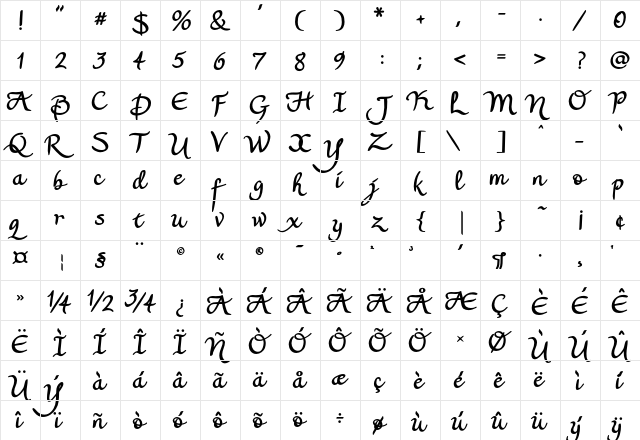 ! " # $ % & ' ( ) * + , - . / 0
1 2 3 4 5 6 7 8 9 : ; < = > ? @
A B C D E F G H I J K L M N O P
Q R S T U V W X Y Z [ \ ] ^ _ `
a b c d e f g h i j k l m n o p
q r s t u v w x y z { | } ~ ¡ ¢
¤ ¦ § ¨ © « ® ¯ ° ´ ¶ · ¸
» 1/4 1/2 3/4 ¿ À Á Â Ã Ä Å Æ Ç È É Ê
Ë Ì Í Î Ï Ñ Ò Ó Ô Õ Ö × Ø Ù Ú Û
Ü Ý à á â ã ä å æ ç è é ê ë ì í
î ï ñ ò ó ô õ ö ÷ ø ù ú û ü ý ÿ